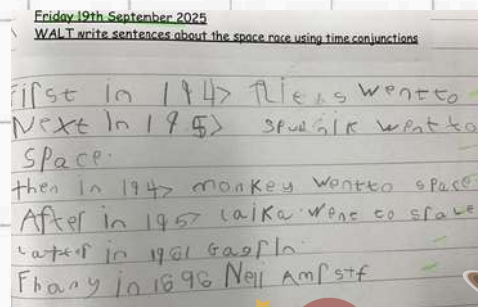 Friday 19th September 2025
WALT write sentences about the space race using time conjunctions
First in 1947 flies went to
Next in 1957 Spudnik went to
space.
then in 1947 monkey went to space
After in 1957 laika went to space
Later in 1961 Gagrin.
in 1696 Neil Amrstf